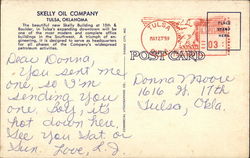 SKELLY OIL COMPANY
TULSA, OKLAHOMA
The beautiful new Skelly Building at 15th &
Boulder in Tulsa's expanding downtown will be
one of the most modern and complete office
buildings in the Southwest. A triumph of en-
gineering, it is designed to serve as headquarters
for all phases of the Company's widespread
petroleum activities.
TULSA
PLACE
STAMP
HERE
POST CARD
Dear Donna,
You sent me
one, so I'm
sending you
one, Lol, it's
hot down here
See you Sat or
Sun. Love,
Donna Moore
1616 N. 17th
Tulsa, Okla.